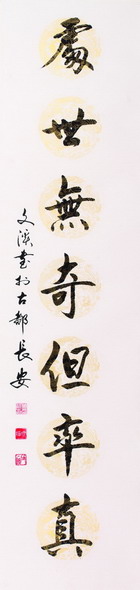 處世無奇但率真
文溪書於古都長安